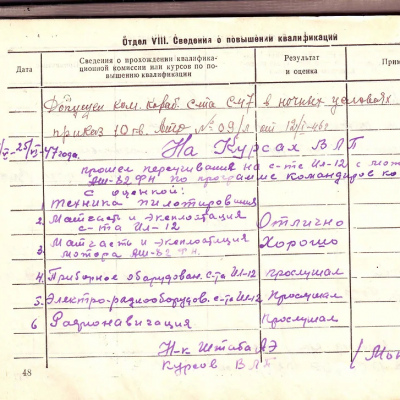 Отдел VIII. Сведения о повышении квалификации
Дата
Сведения о прохождении квалифика-
ционной комиссии или курсов по по-
вышению квалификации
Результат
и оценка
Прим
Допущен ком. кораб. с-та С-47 в ночных условиях
приказ 10 гв. Атд № 09/л от
На Курсах ВЛП
25/ 47 года.
прошел переучивание на с-те Ил-12 с мот
АШ-82 ФН, по программе командиров ко
с оценкой:
1. техника пилотирования
2. Матчасть и эксплоатация
с-та Ил-12
Отлично
3. Матчасть и эксплоатация
мотора АШ-82 ФН.
Хорошо
4. Приборное оборудован. с-та Ил-12 прослушал
5. Электро-радиооборудов. с-та Ил-12 Прослушал
6 Радионавигация Прослушал
Н-к Штаба АЭ
Курсов ВЛП
48